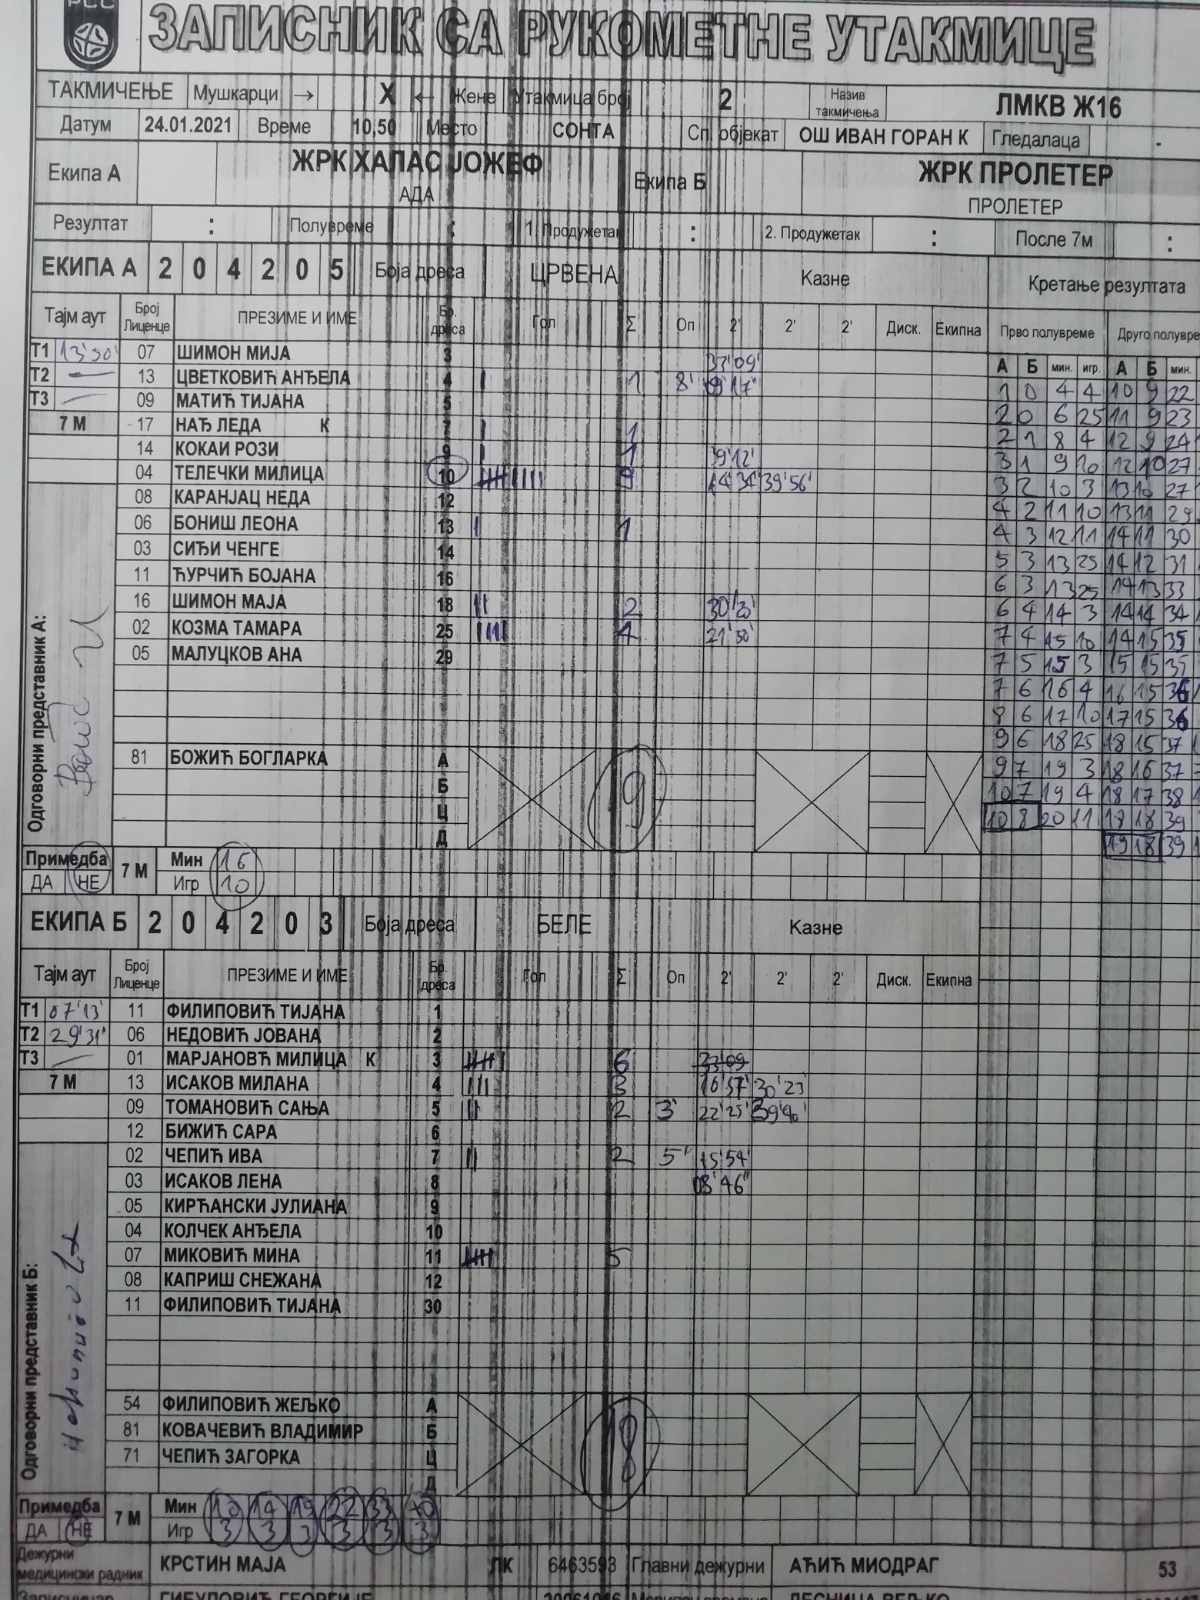 РСС
ЗАПИСНИК СА РУКОМЕТНЕ УТАКМИЦЕ
ТАКМИЧЕЊЕ Мушкарци → X ← Жене Утакмица број 2 Назив такмичења ЛМКВ Ж16
Датум 24.01.2021 Време 10,50 Место СОНТА Сп. објекат ОШ ИВАН ГОРАН К Гледалаца -
Екипа А ЖРК ХАЛАС ЈОЖЕФ Екипа Б ЖРК ПРОЛЕТЕР
АДА ПРОЛЕТЕР
Резултат : Полувреме : 1. Продужетак : 2. Продужетак : После 7м :
ЕКИПА А 2 0 4 2 0 5 Боја дреса ЦРВЕНА Казне Кретање резултата
Тајм аут Број Лиценце ПРЕЗИМЕ И ИМЕ Бр. дреса Гол Σ Оп 2' 2' 2' Диск. Екипна Прво полувреме Друго полувре
А Б мин. игр. А Б мин.
Т1 13'50' 07 ШИМОН МИЈА 3 37'09' 1 0 4 4 10 9 22
Т2 — 13 ЦВЕТКОВИЋ АНЂЕЛА 4 1 8' 2 0 6 25 11 9 23
Т3 09 МАТИЋ ТИЈАНА 5 2 1 8 4 12 9 24
7 М 17 НАЂ ЛЕДА К 7 1 3 1 9 10 12 10 27
14 КОКАИ РОЗИ 9 1 9'12' 3 2 10 3 13 10 27
04 ТЕЛЕЧКИ МИЛИЦА 10 9 14'34' 39'56' 4 2 11 10 13 11 29
08 КАРАНЈАЦ НЕДА 12 4 3 12 11 14 11 30
06 БОНИШ ЛЕОНА 13 1 5 3 13 25 14 12 31
03 СИЂИ ЧЕНГЕ 14 6 3 13 25 14 13 33
11 ЋУРЧИЋ БОЈАНА 16 6 4 14 3 14 14 34
16 ШИМОН МАЈА 18 2 30'23' 7 4 15 10 14 15 35
02 КОЗМА ТАМАРА 25 4 21'50' 7 5 15 3 15 15 35
05 МАЛУЦКОВ АНА 29 7 6 16 4 16 15 36
8 6 17 10 17 15 36
9 6 18 25 18 15 37
Одговорни представник А:
81 БОЖИЋ БОГЛАРКА А 19 9 7 19 3 18 16 37
Б 10 7 19 4 18 17 38
Ц 10 8 20 11 18 18 39
Д 19 18 39
Примедба 7 М Мин 16
ДА НЕ Игр 10
ЕКИПА Б 2 0 4 2 0 3 Боја дреса БЕЛЕ Казне
Тајм аут Број Лиценце ПРЕЗИМЕ И ИМЕ Бр. дреса Гол Σ Оп 2' 2' 2' Диск. Екипна
Т1 07'13' 11 ФИЛИПОВИЋ ТИЈАНА 1
Т2 29'31' 06 НЕДОВИЋ ЈОВАНА 2
Т3 01 МАРЈАНОВЋ МИЛИЦА К 3 6 33'09
7 М 13 ИСАКОВ МИЛАНА 4 3 16'57' 30'23'
09 ТОМАНОВИЋ САЊА 5 2 3' 22'25' 39'40'
12 БИЖИЋ САРА 6
02 ЧЕПИЋ ИВА 7 2 5' 15'54'
03 ИСАКОВ ЛЕНА 8 08'46"
05 КИРЋАНСКИ ЈУЛИАНА 9
04 КОЛЧЕК АНЂЕЛА 10
07 МИКОВИЋ МИНА 11 5
08 КАПРИШ СНЕЖАНА 12
11 ФИЛИПОВИЋ ТИЈАНА 30
Одговорни представник Б:
54 ФИЛИПОВИЋ ЖЕЉКО А 18
81 КОВАЧЕВИЋ ВЛАДИМИР Б
71 ЧЕПИЋ ЗАГОРКА Ц
Д
Примедба 7 М Мин 10 14 19 22 33 40
ДА НЕ Игр 3 3 3 3 3 3
Дежурни медицински радник КРСТИН МАЈА ЛК 6463593 Главни дежурни АЋИЋ МИОДРАГ 53